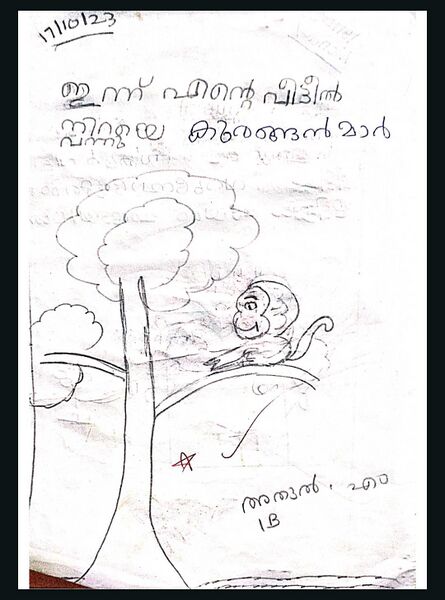 17/10/23
ഇന്ന് എന്റെ വീട്ടിൽ
നിറയെ കുരങ്ങൻമാർ
വന്നു
അതുൽ. എം
1B